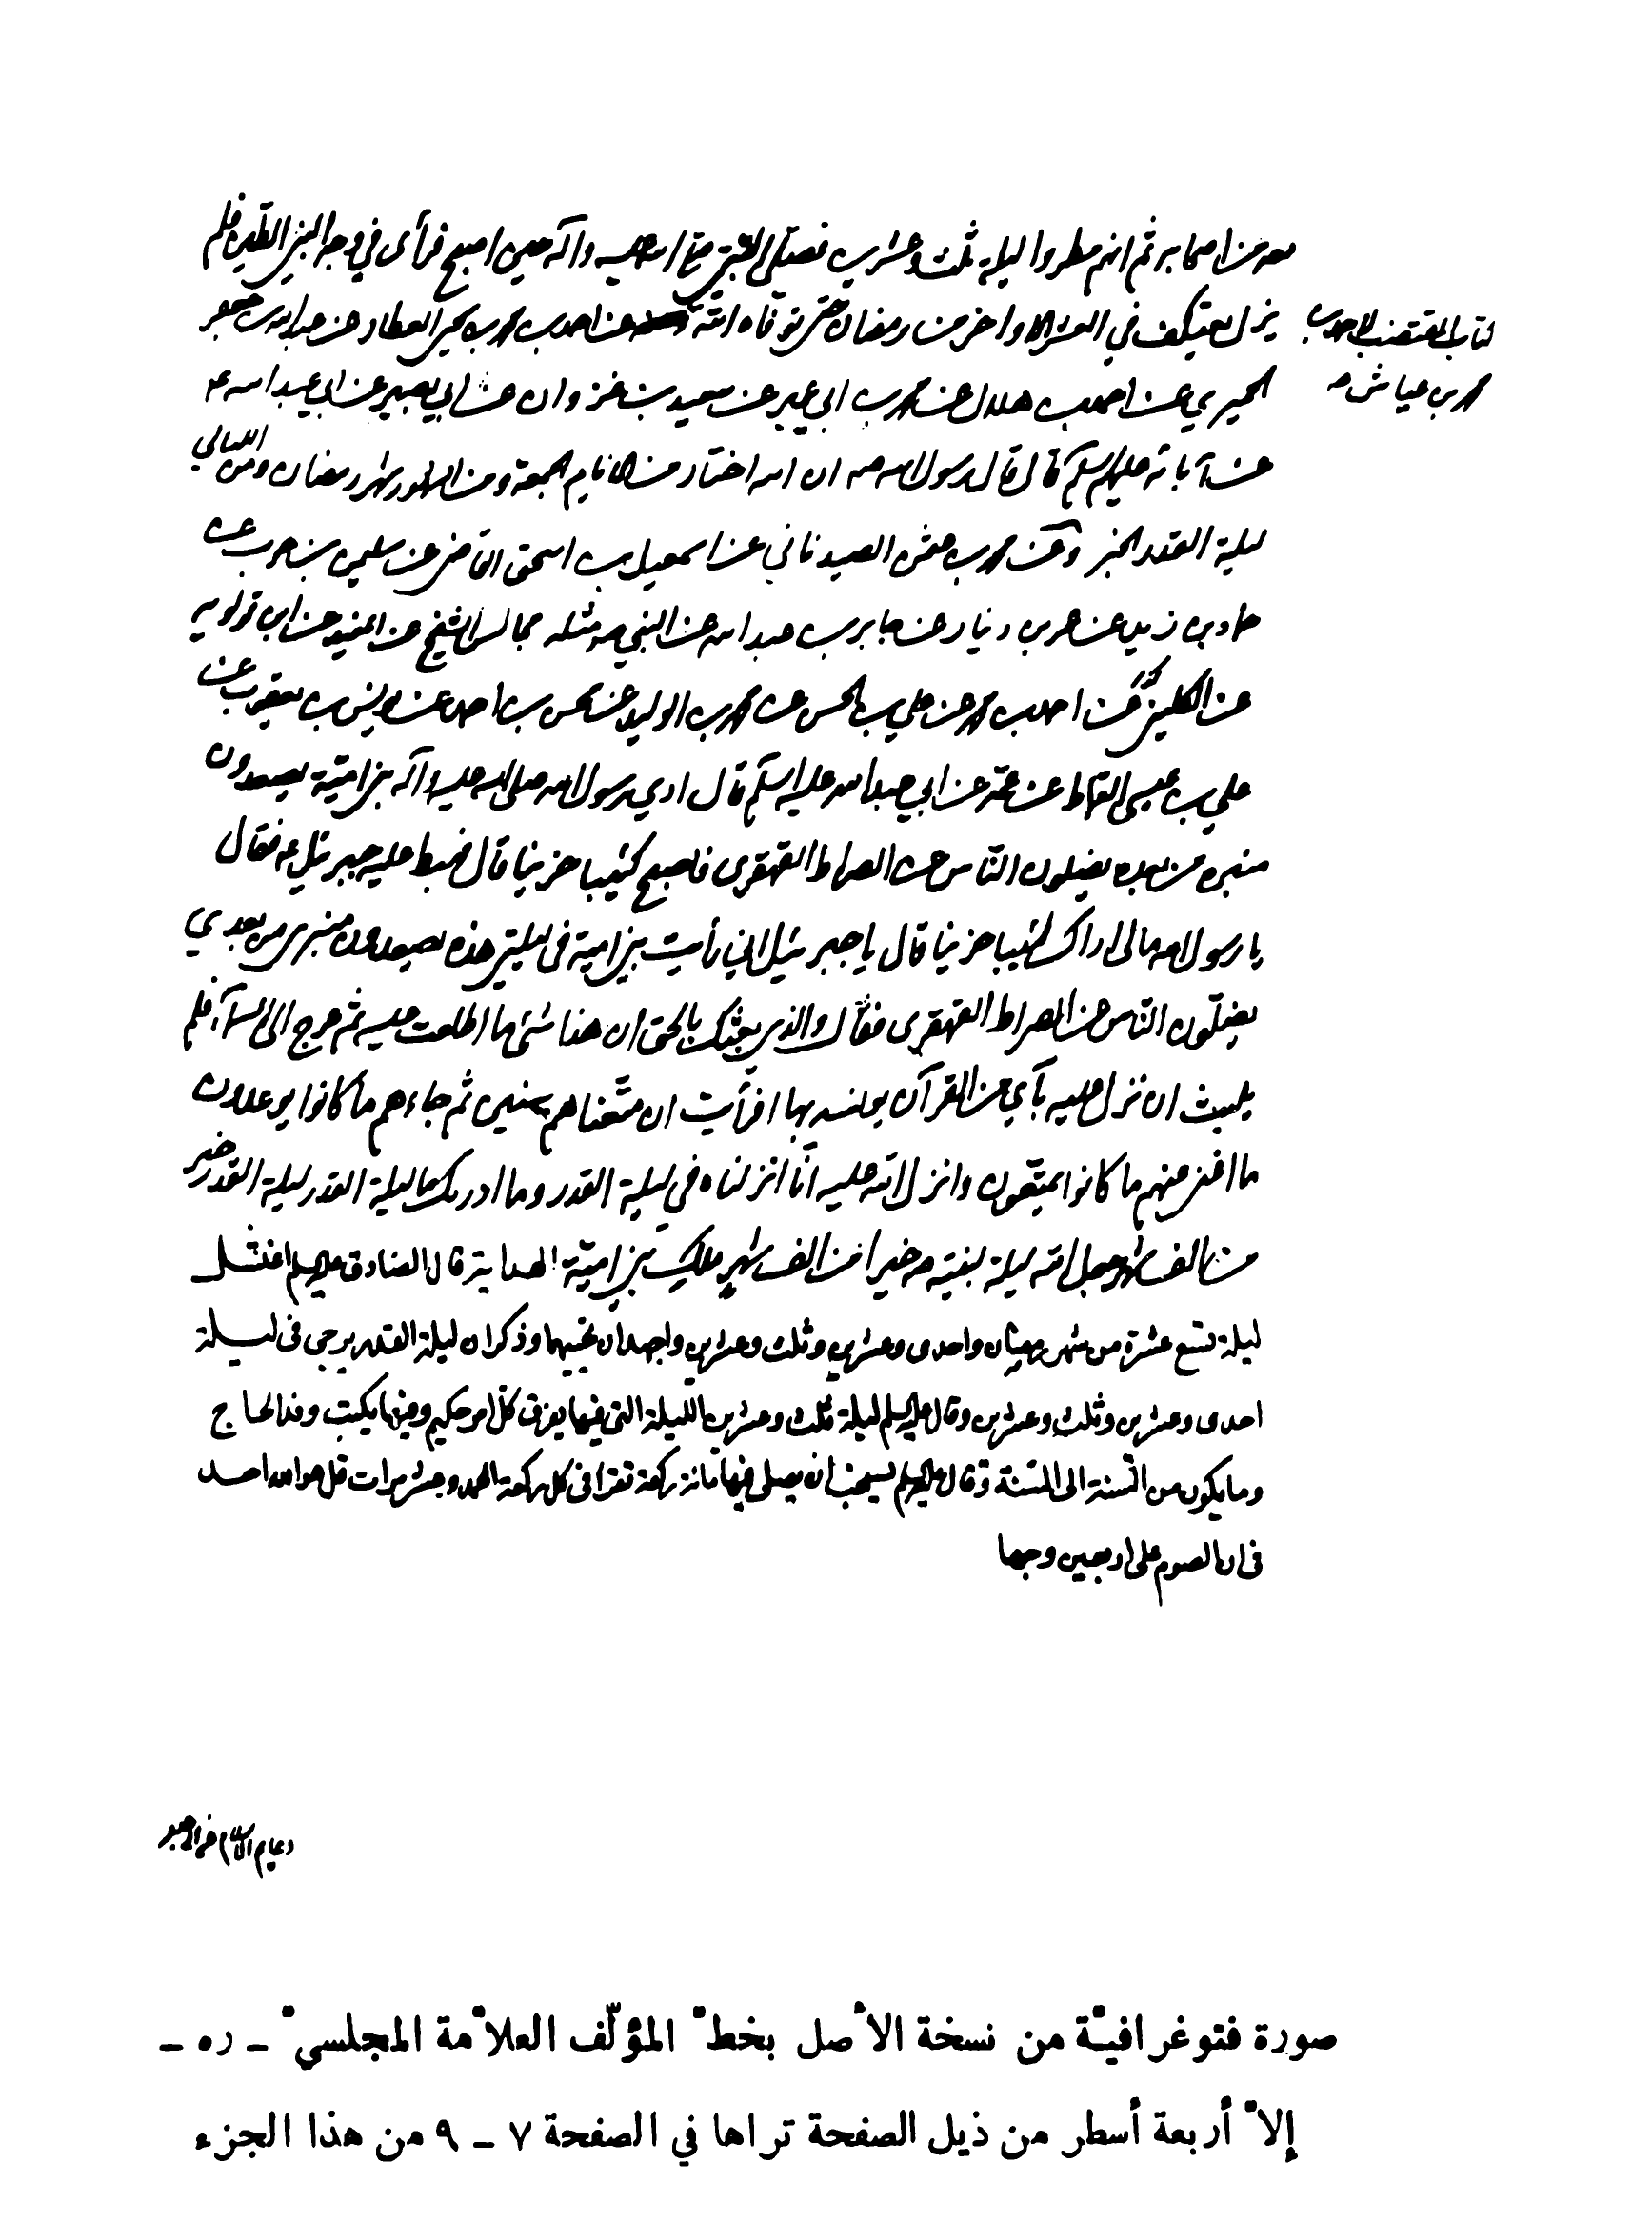 معه من اصحابه ثم انهم مطروا ليلة ثلث وعشرين فصلى النبي صلى الله عليه وآله حين اصبح فرأى في وجه النبي الطين فلم
يزل يعتكف في العشر الاواخر من رمضان حتى توفاه الله
عن احمد بن محمد بن يحيى العطار عن عبدالله بن جعفر
كتاب المقتضب لاحمد بن
محمد بن عياش
الحميري عن احمد بن هلال عن محمد بن ابي عمير عن سعيد بن غزوان عن ابي بصير عن ابي عبدالله ع
عن آبائه عليهم السلم قال قال رسول الله ص ان الله اختار من الايام الجمعة ومن الشهور شهر رمضان ومن الليالي
ليلة القدر الخبر وعن محمد بن عثمن الصيدناني عن اسمعيل بن اسحق القاضي عن سليمن بن حرب عن
حماد بن زيد عن عمرو بن دينار عن جابر بن عبدالله عن النبي ص مثله مجالس الشيخ عن المفيد عن ابن قولويه
عن الكليني عن احمد بن محمد عن علي بن الحسن عن محمد بن الوليد عن محسن بن احمد عن يونس بن يعقوب عن
علي بن عيسى القماط عن عمه عن ابي عبدالله عليه السلم قال اري رسول الله صلى الله عليه وآله بني امية يصعدون
منبره من بعده يضلون الناس عن الصراط القهقرى فاصبح كئيبا حزينا قال فهبط عليه جبرئيل ع فقال
يا رسول الله مالي اراك كئيبا حزينا قال يا جبرئيل اني رأيت بني امية في ليلتي هذه يصعدون منبري من بعدي
يضلون الناس عن الصراط القهقرى فقال والذي بعثك بالحق ان هذا شئ ما اطلعت عليه ثم عرج الى السمآء فلم
يلبث ان نزل عليه بآي من القرآن يونسه بها افرأيت ان متعناهم سنين ثم جاءهم ما كانوا يوعدون
ما اغنى عنهم ما كانوا يمتعون وانزل الله عليه انا انزلناه في ليلة القدر وما ادريك ما ليلة القدر ليلة القدر خير
من الف شهر جعل الله ليلة لنبيه ص خيرا من الف شهر ملك بني امية الهداية قال الصادق عليه السلم اغتسل
ليلة تسع عشرة من شهر رمضان واحدى وعشرين وثلث وعشرين واجهد ان تحييهما وذكر ان ليلة القدر يرجى في ليلة
احدى وعشرين وثلث وعشرين وقال عليه السلم ليلة ثلث وعشرين الليلة التي فيها يفرق كل امر حكيم وفيها يكتب وفد الحاج
وما يكون من السنة الى السنة وقال عليه السلم يستحب ان يصلى فيها مائة ركعة تقرا في كل ركعة الحمد وعشر مرات قل هو الله احد
في ان الصوم على اربعين وجها
دعايم الاسلام
صورة فتوغرافيّة من نسخة الأصل بخطّ المؤلّف العلاّمة المجلسيّ ـ ره ـ
إلاّ أربعة أسطر من ذيل الصفحة تراها في الصفحة ٧ ـ ٩ من هذا الجزء